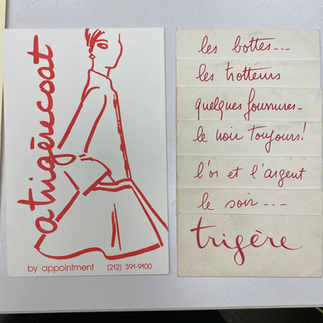 a trigère coat
by appointment (212) 391-9100
les bottes---
les trotteurs
quelques fourrures-
le noir toujours!
l'or et l'argent
le soir---
trigère